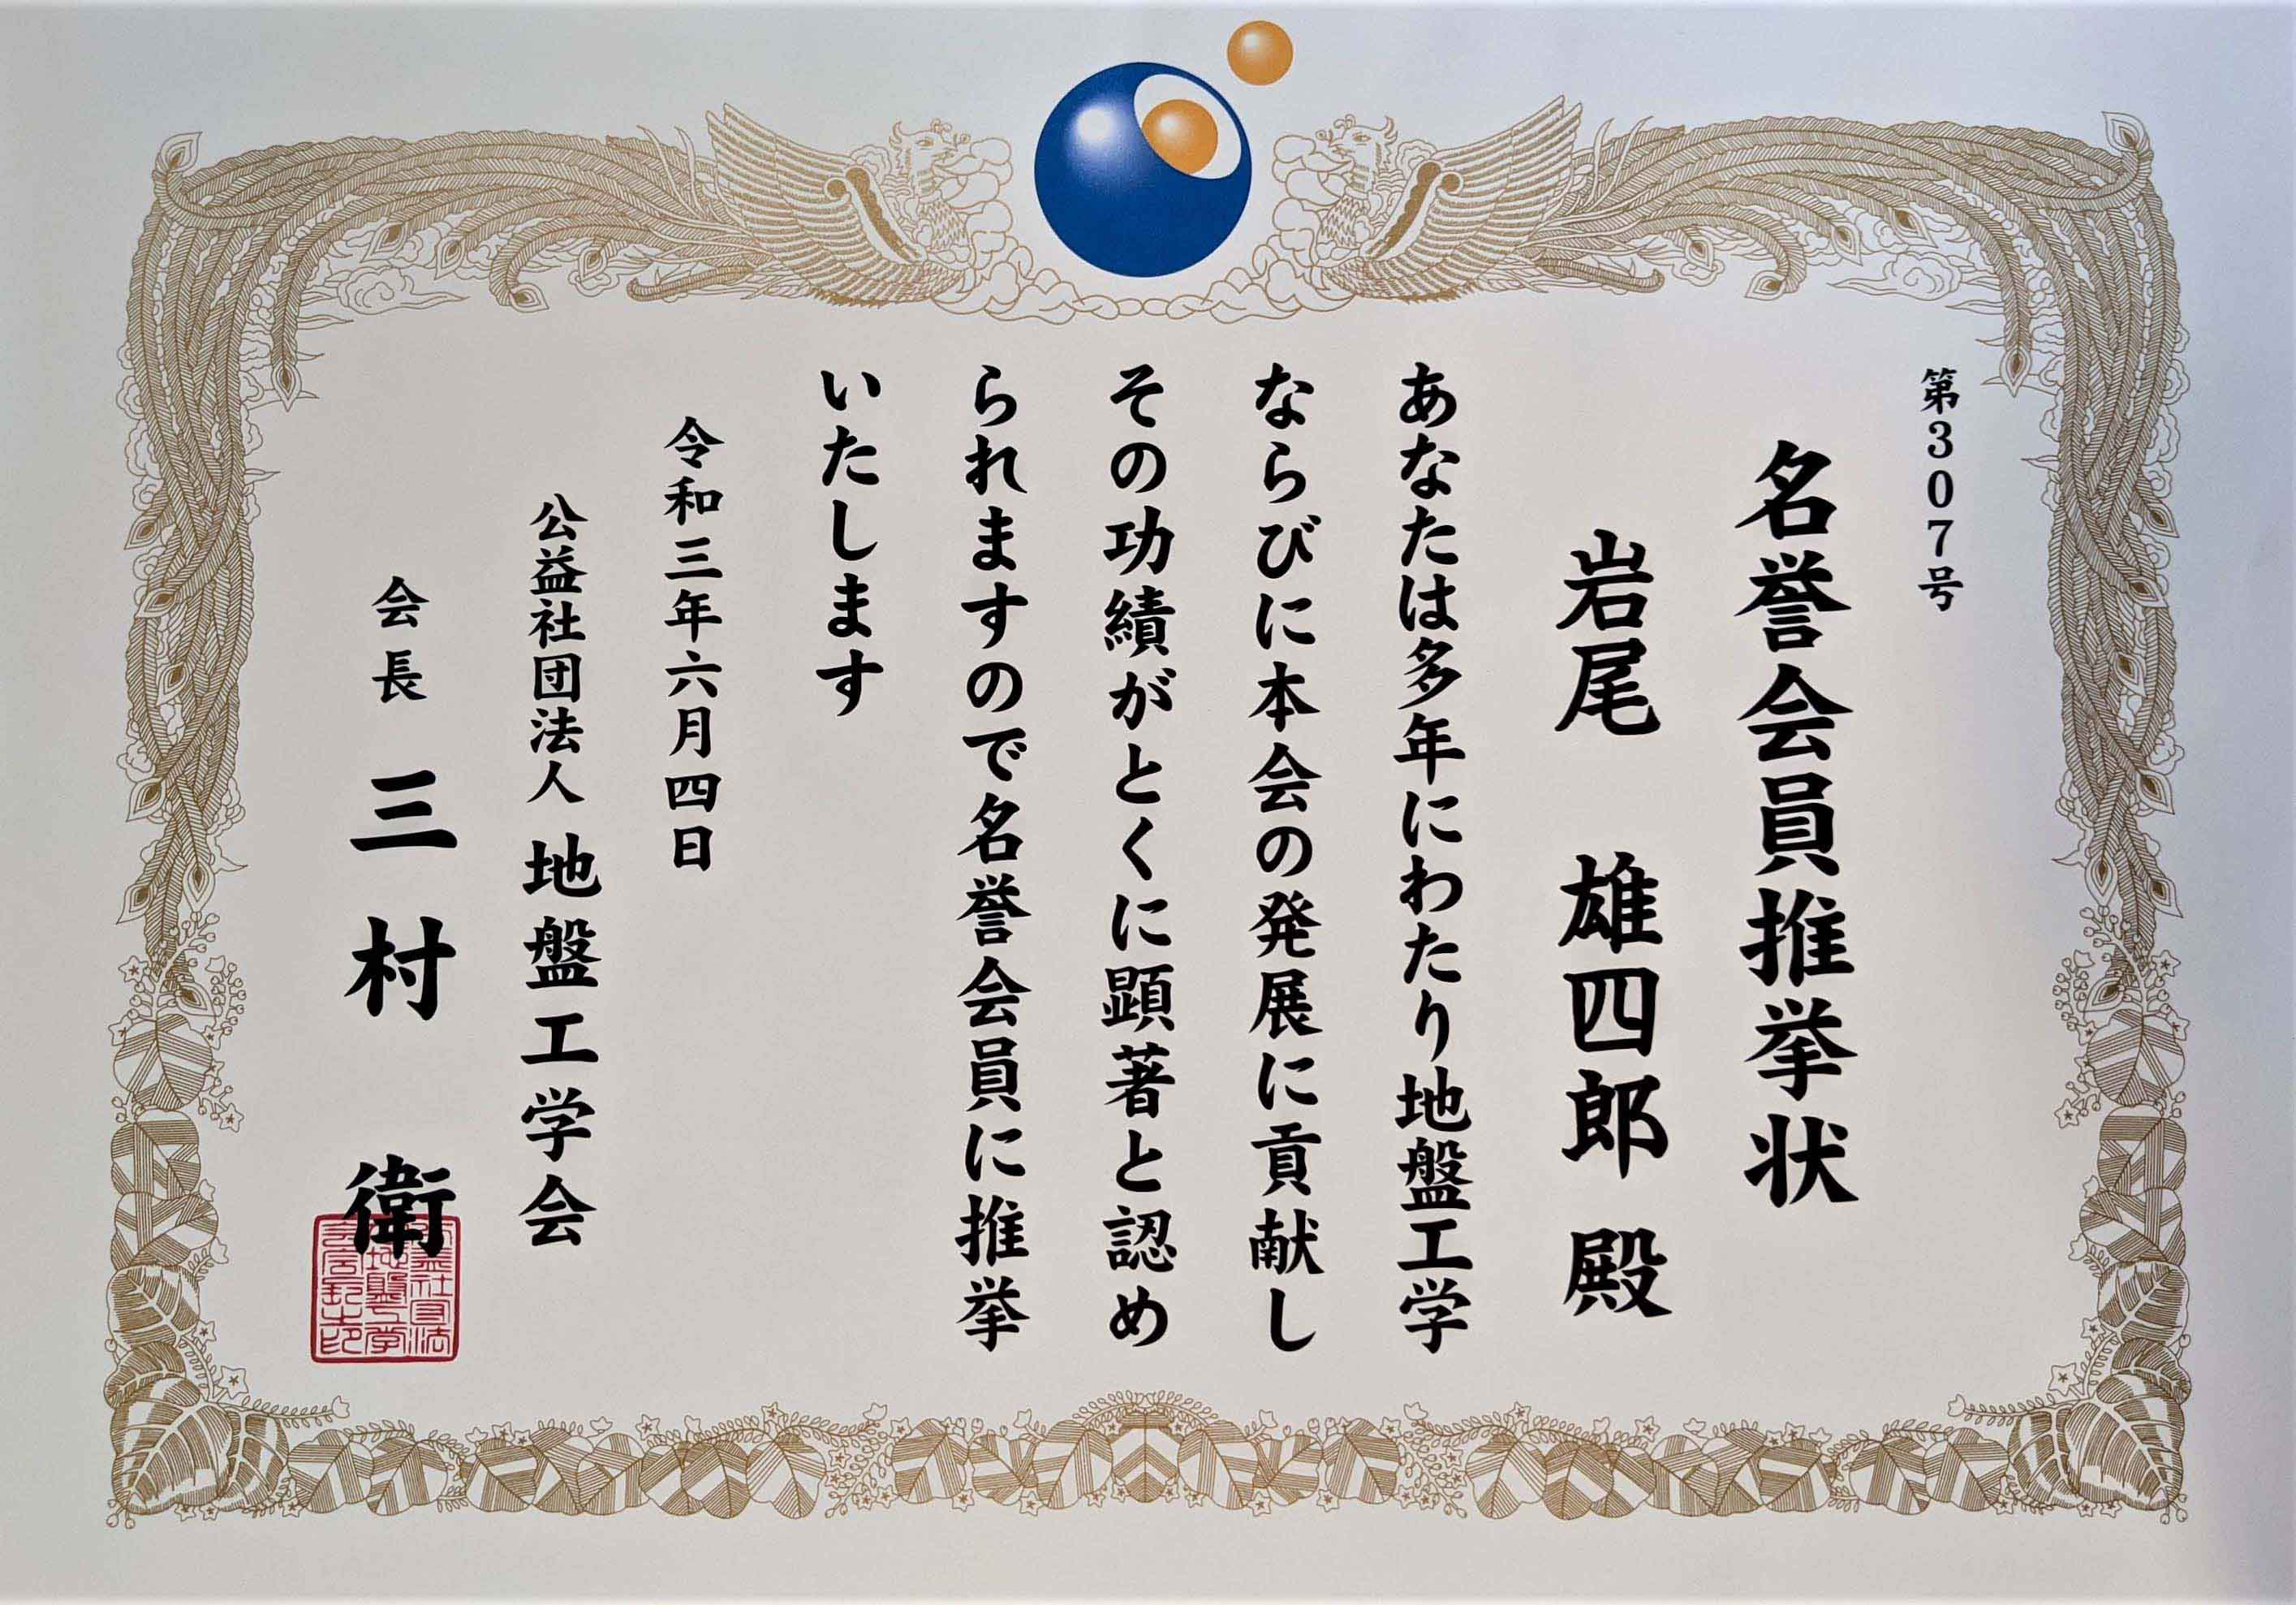 第307号
名誉会員推挙状
岩尾 雄四郎 殿
あなたは多年にわたり地盤工学
ならびに本会の発展に貢献し
その功績がとくに顕著と認め
られますので名誉会員に推挙
いたします
令和三年六月四日
公益社団法人 地盤工学会
会長 三村 衛